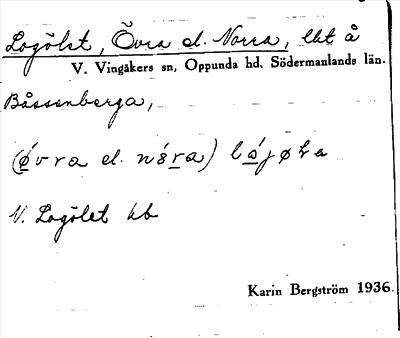 Logölst, Övra el. Norra, lht å
V. Vingåkers sn, Oppunda hd, Södermanlands län.
Båssenberga,
(øvra el. nora)
N. Logölet hb
Karin Bergström 1936.